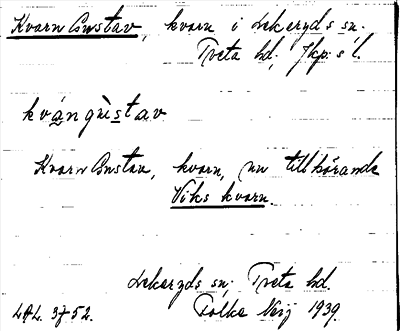 Kvarn Gustav, kvarn i Lekeryds sn.
Tveta hd; Jkp:s l.
kvángùstav
Kvarn Gustav, kvarn, nu tillhörande
Viks kvarn.
Lekeryds sn; Tveta hd.
LAL. 3752. Folke Neij 1939.